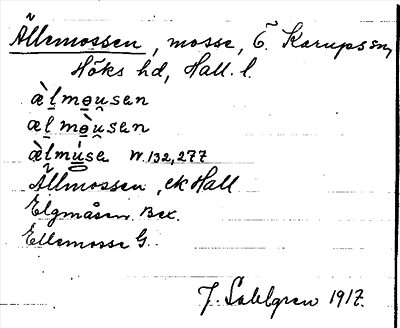 Ällemossen, mosse, Ö. Karups sn,
Höks hd, Hall. l.
æ̀lmөu̯sen
ælmө̀u̯sen
æ̀lmúse W. 132,277
Ällmossen, ek Hall
Elgmåsen. Bex.
Ellemosse G.
J. Sahlgren 1917.